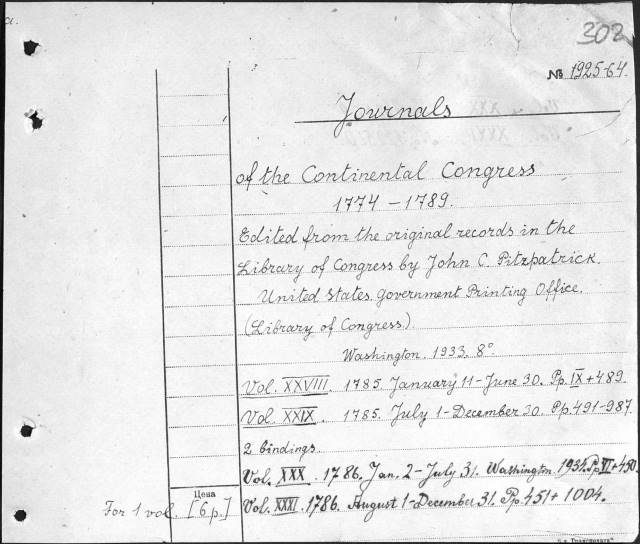 a.
302
№ 1925-64.
Journals
of the Continental Congress
1774 – 1789.
Edited from the original records in the
Library of Congress by John C. Pitzpatrick.
United States Government Printing Office.
(Library of Congress.)
Washington. 1933. 8°
Vol. XXVIII. 1785. January 11-June 30. Pp. IX+489.
Vol. XXIX. 1785. July 1-December 30. Pp. 491-987.
2 bindings.
Vol. XXX. 1786. Jan. 2-July 31. Washington. 1934. Pp. VI+450.
Цена
For 1 vol. [6 р.] Vol. XXXI. 1786. August 1-December 31. Pp. 451+1004.